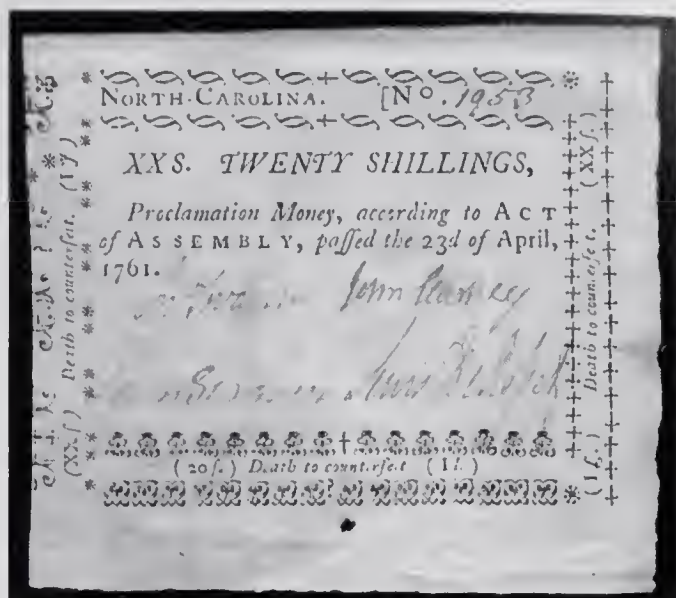 NORTH-CAROLINA. [No. 1953
XXS. TWENTY SHILLINGS,
Proclamation Money, according to ACT
of ASSEMBLY, paſſed the 23d of April,
1761.
John
(20ſ.) Death to counterfeit (1l.)
(XXſ) Death to counterfeit. (Iſ)
(Iſ.) Death to counterfeit. (XXſ.)